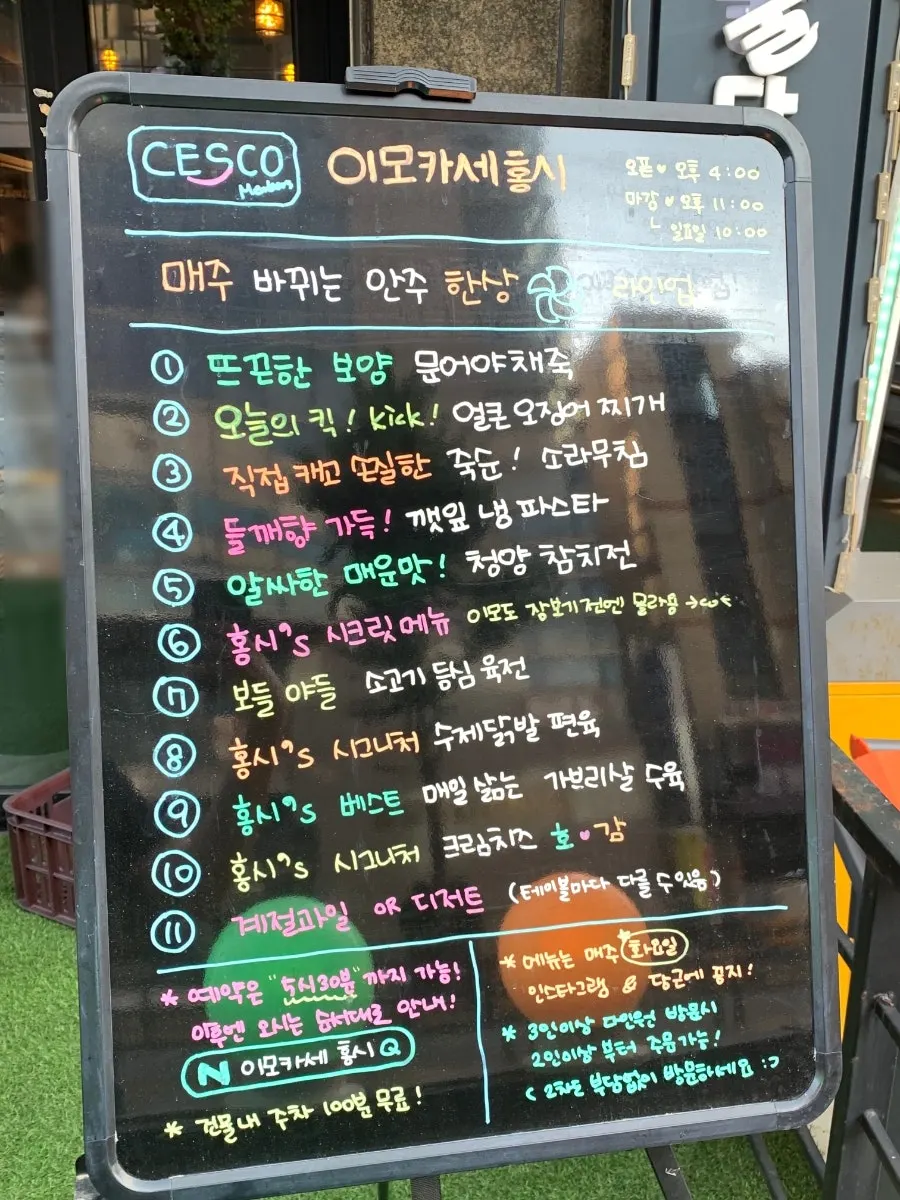 CESCO
Members
이모카세홍시
오픈♥오후 4:00
마감♥오후 11:00
ㄴ 일요일 10:00
매주 바뀌는 안주 한상 라인업
① 뜨끈한 보양 문어야채죽
② 오늘의 킥! kick! 얼큰 오징어 찌개
③ 직접 캐고 손질한 죽순! 소라무침
④ 들깨향 가득! 깻잎 냉 파스타
⑤ 알싸한 매운맛! 청양 참치전
⑥ 홍시's 시크릿메뉴 이모도 장보기전엔 몰라용
⑦ 보들 야들 소고기 등심 육전
⑧ 홍시's 시그니처 수제닭발 편육
⑨ 홍시's 베스트 매일 삶는 가브리살 수육
⑩ 홍시's 시그니처 크림치즈 호♥감
⑪ 계절과일 OR 디저트 (테이블마다 다를 수 있음)
* 예약은 "5시30분"까지 가능!
이후엔 오시는 순서대로 안내!
N 이모카세 홍시 Q
* 건물내 주차 100분 무료!
* 메뉴는 매주 화요일
인스타그램 & 당근에 공지!
* 3인이상 다인원 방문시
2인이상 부터 주문가능!
< 2차도 부담없이 방문하세요 :>